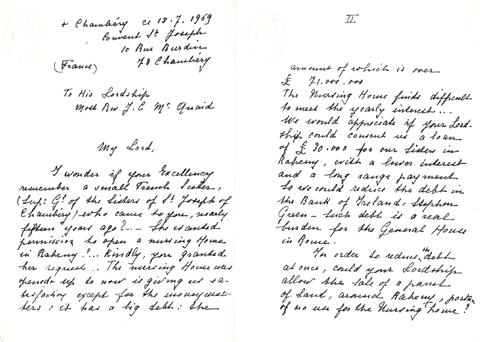 + Chambéry ce 18.7.1969
Convent St Joseph
10 Rue Burdin
(France) 73 Chambéry
To His Lordship
Most Rev J. C. Mc Quaid
My Lord,
I wonder if your Excellency
remember a small French Sister,
(Sup: Gl of the Sisters of St Joseph of
Chambéry) who came to you, nearly
fifteen years ago?... She wanted
permission to open a nursing Home
in Raheny!... Kindly, you granted
her request.. The nursing Home was
opened up to now is giving us sa-
tisfactory except for the money mat-
ters: it has a big debt: the
II
amount of which is over
£ 71.000.000
The Nursing Home finds difficult
to meet the yearly interest...
We would appreciate if your Lord-
ship could consent us a loan
of £ 30.000 for our Sisters in
Raheny, with a lower interest
and a long range payment
So we could reduce the debt in
the Bank of Ireland. Stephen
Green - such debt is a real
burden for the General House
in Rome.
In order to reduce the debt
at once, could your Lordship
allow the sale of a parcel
of Land, around Raheny,
of no use for the Nursing home?